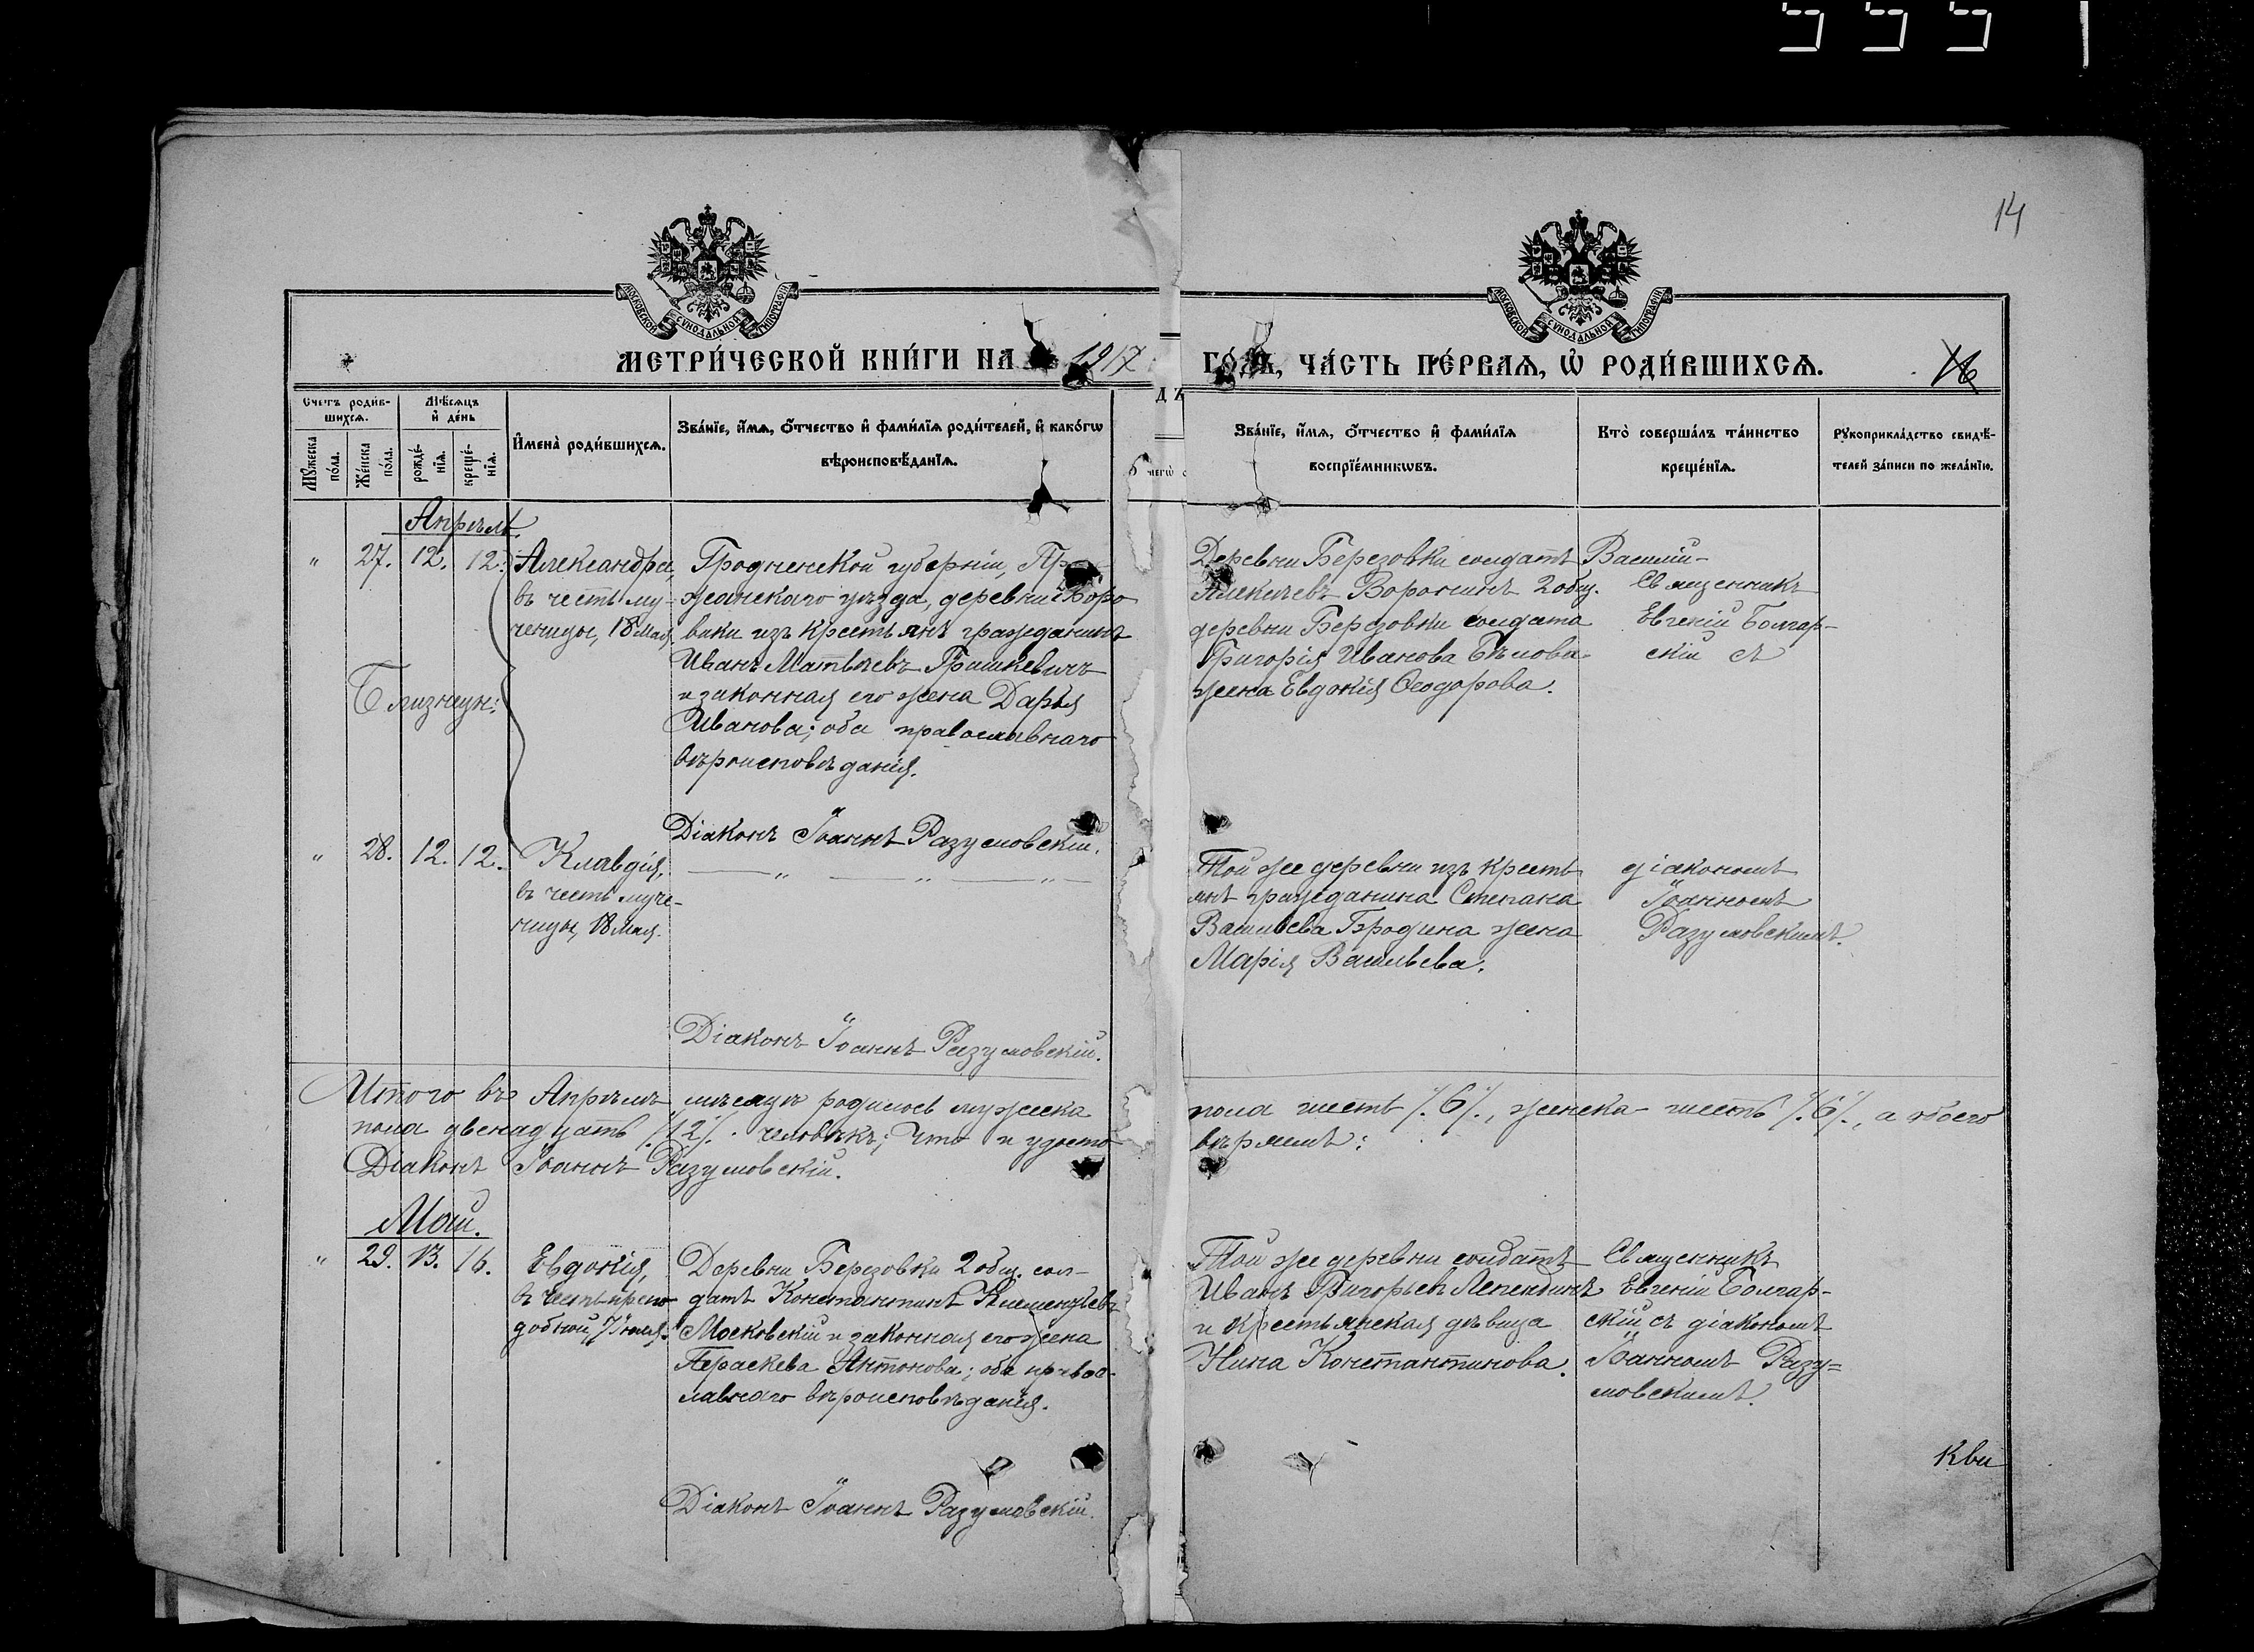 14
МОСКОВСКОЙ СУНОДАЛЬНОЙ ТИПОГРАФІИ
МОСКОВСКОЙ СУНОДАЛЬНОЙ ТИПОГРАФІИ
МЕТРИ́ЧЕСКОЙ КНИ́ГИ НА 1917 ГО́ДЪ, ЧА́СТЬ ПЕ́РВАЯ, Ѡ РОДИ́ВШИХСЯ.
16
Счетъ роди́в-
шихся.
Мѣ́сяцъ
и҆ де́нь
Му́жеска
по́ла.
Же́нска
по́ла.
рожде́-
нїя.
креще́-
нїя.
И҆мена̀ роди́вшихся.
Зва́нїе, и҆́мя, ѻ҆́тчество и҆ фами́лїя роди́телей, и҆ како́гѡ
вѣроисповѣ́данїя.
Зва́нїе, и҆́мя, ѻ҆́тчество и҆ фами́лїя
воспрїе́мникѡвъ.
Кто̀ соверша́лъ та́инство
креще́нїя.
Рꙋкоприкла́дство свидѣ́-
телей за́писи по жела́нїю.
Апрѣль
" 27. 12. 12.
Александра,
въ честь му-
ченицы, 18 мая
Близнец.
Гродненской губерніи, Пру-
жанскаго уѣзда, деревни Боро
вики изъ крестьянъ гражданинъ
Иванъ Матвѣевъ Гришкевичъ
и законная его жена Дарья
Иванова; оба православнаго
вѣроисповѣданія.
Діаконъ Іоаннъ Разумовскій.
Деревни Березовки солдатъ Василій
Алексѣевъ Воронинъ 2 общ.
деревни Березовки солдата
Григорія Иванова Бѣлова
жена Евдокія Ѳеодорова.
Священникъ
Евгеній Болгар-
скій съ
" 28. 12. 12.
Клавдія,
въ честь муче-
ницы, 18 мая.
— " — " — " —
Діаконъ Іоаннъ Разумовскій.
Той же деревни изъ кресть
янъ гражданина Степана
Васильева Бродина жена
Марія Васильева.
діакономъ
Іоанномъ
Разумовскимъ.
Итого въ Апрѣлѣ мѣсяцѣ родилось мужска пола шесть /.6/., женска шесть /.6/., а обоего
пола двенадцать /.12/. человѣкъ; что и удосто вѣряемъ:
Діаконъ Іоаннъ Разумовскій.
Май.
" 29. 13. 16.
Евдокія,
въ честь препо
добной, 7 іюня.
Деревни Березовки 2 общ. сол-
датъ Константинъ Клементьевъ
Московскій и законная его жена
Параскева Антонова; оба правос-
лавнаго вѣроисповѣданія.
Діаконъ Іоаннъ Разумовскій.
Той же деревни солдатъ
Иванъ Григорьевъ
и крестьянская дѣвица
Нина Константинова.
Священникъ
Евгеній Болгар-
скій съ діакономъ
Іоанномъ Разу=
мовскимъ.